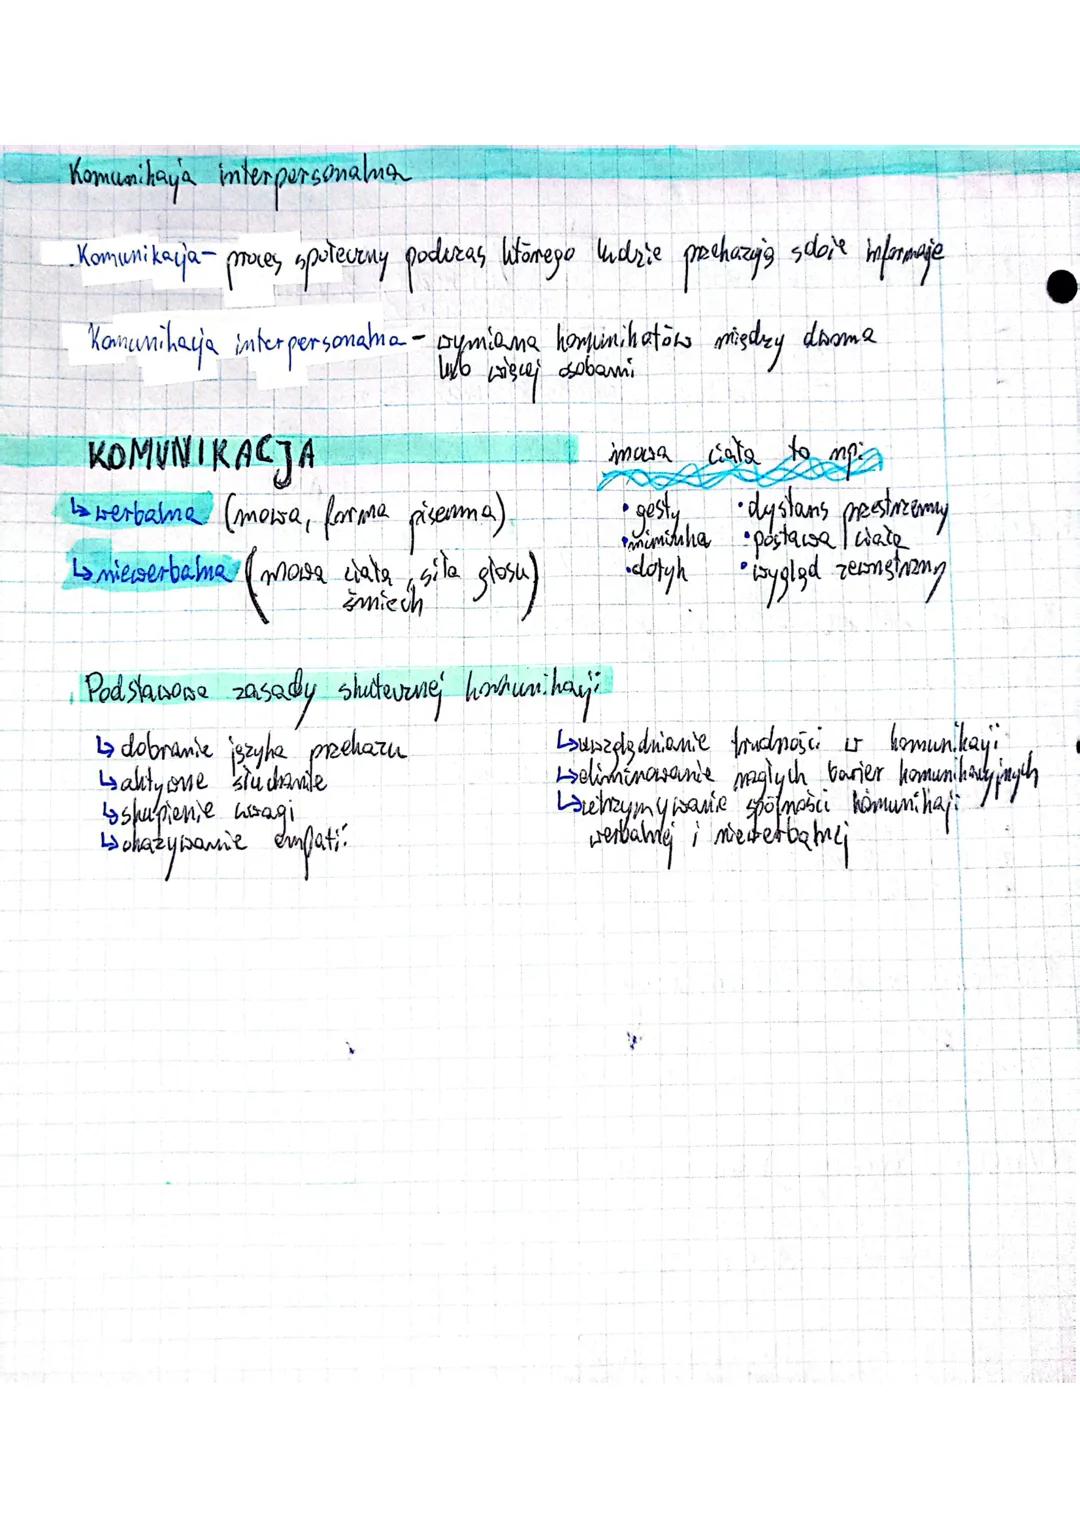 Komunikacja interpersonalna
Komunikacja - proces społeczny podczas którego ludzie przekazują sobie informacje
Komunikacja interpersonalna - wymiana komunikatów między dwoma
lub więcej osobami
KOMUNIKACJA
↳ werbalna (mowa, forma pisemna)
↳ niewerbalna (mowa ciała, siła głosu
śmiech)
mowa ciała to np:
• gesty
• mimika
• dotyk
• dystans przestrzenny
• postawa ciała
• wygląd zewnętrzny
Podstawowe zasady skutecznej komunikacji:
↳ dobranie języka przekazu
↳ aktywne słuchanie
↳ skupienie uwagi
↳ okazywanie empatii
↳ uwzględnianie trudności w komunikacji
↳ eliminowanie nagłych barier komunikacyjnych
↳ utrzymywanie spójności komunikacji
werbalnej i niewerbalnej